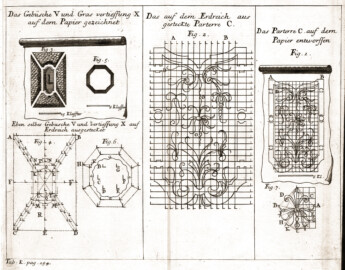 Das Gebüsche V und Gras vertieffung X
auf dem Papier gezeichnet
Fig. 3.
Fig. 5.
Klaffter
Klaffter
Eben selbes Gebüsche V und vertieffung X auf
Erdreich ausgestecket
Fig. 4.
Fig. 6.
A
B
H
E
F
R
E
D
Das auf dem Erdreich aus
gesteckte Parterre C.
Fig. 2.
A
B
Das Parterre C auf dem
Papier entworffen
Fig. 1.
Fig. 7.
A
D
Tab. I. pag. 194.